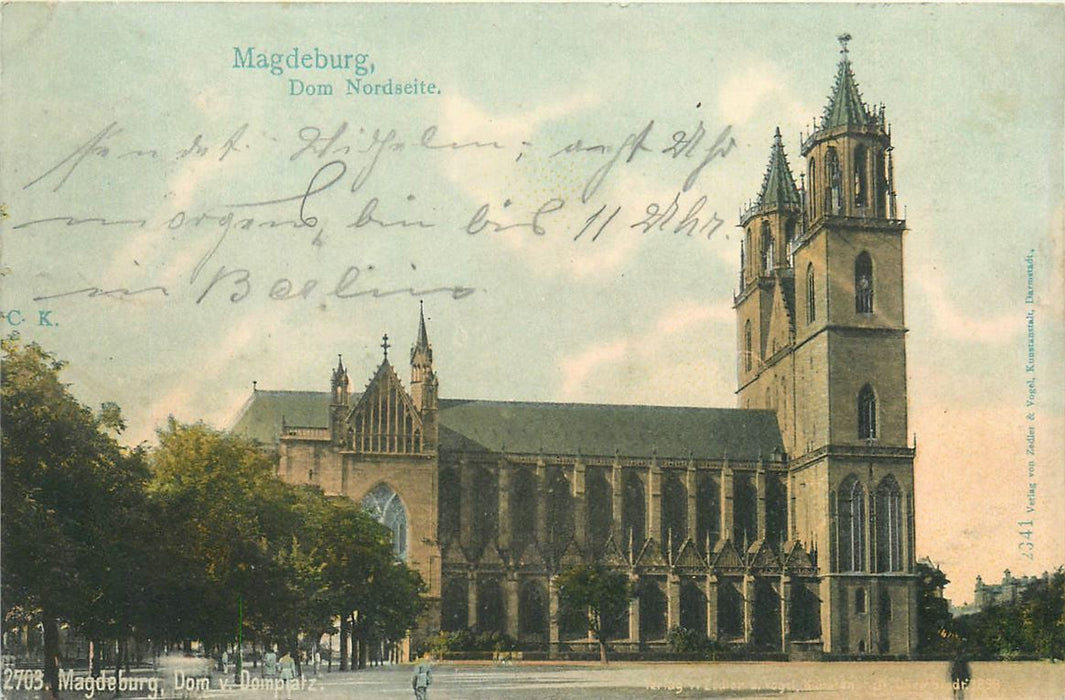 Magdeburg,
Dom Nordseite.
sendet Wilhelm; acht Uhr
morgens, bin bis 11 Uhr.
in Berlin
C. K.
2341 Verlag von Zedler & Vogel, Kunstanstalt, Darmstadt.
2703. Magdeburg, Dom v. Domplatz.